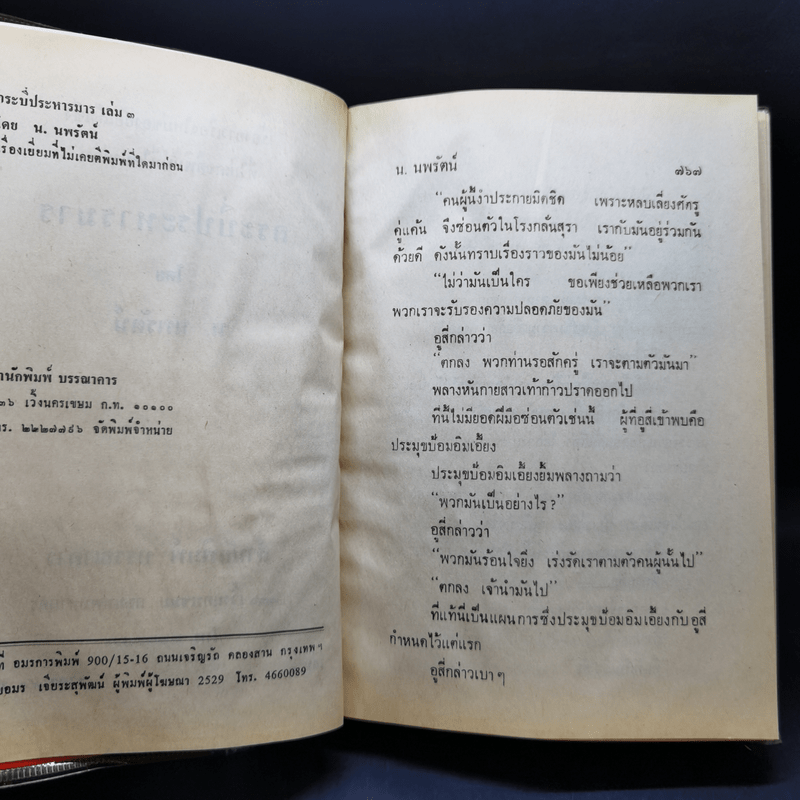 กระบี่ประหารมาร เล่ม ๓
โดย น. นพรัตน์
เรื่องเยี่ยมที่ไม่เคยตีพิมพ์ที่ใดมาก่อน
สำนักพิมพ์ บรรณาคาร
๓๖ เวิ้งนครเขษม ก.ท. ๑๐๑๐๐
ทร. ๒๒๒๗๗๙๖ จัดพิมพ์จำหน่าย
ที่ อมรการพิมพ์ 900/15-16 ถนนเจริญรัถ คลองสาน กรุงเทพฯ
เจียระสุพัฒน์ ผู้พิมพ์ผู้โฆษณา 2529 โทร. 4660089
น. นพรัตน์ ๗๖๗
“คนผู้นี้งำประกายมิดชิด เพราะหลบเลี่ยงศัตรู
คู่แค้น จึงซ่อนตัวในโรงกลั่นสุรา เรากับมันอยู่ร่วมกัน
ด้วยดี ดังนั้นทราบเรื่องราวของมันไม่น้อย”
“ไม่ว่ามันเป็นใคร ขอเพียงช่วยเหลือพวกเรา
พวกเราจะรับรองความปลอดภัยของมัน”
อูสี่กล่าวว่า
“ตกลง พวกท่านรอสักครู่ เราจะตามตัวมันมา”
พลางหันกายสาวเท้าก้าวปราดออกไป
ที่นี้ไม่มียอดฝีมือซ่อนตัวเช่นนี้ ผู้ที่อูสี่เข้าพบคือ
ประมุขป้อมอิมเอี้ยง
ประมุขป้อมอิมเอี้ยงยิ้มพลางถามว่า
“พวกมันเป็นอย่างไร?”
อูสี่กล่าวว่า
“พวกมันร้อนใจยิ่ง เร่งรัดเราตามตัวคนผู้นั้นไป”
“ตกลง เจ้านำมันไป”
ที่แท้นี่เป็นแผนการซึ่งประมุขป้อมอิมเอี้ยงกับอูสี่
กำหนดไว้แต่แรก
อูสี่กล่าวเบาๆ